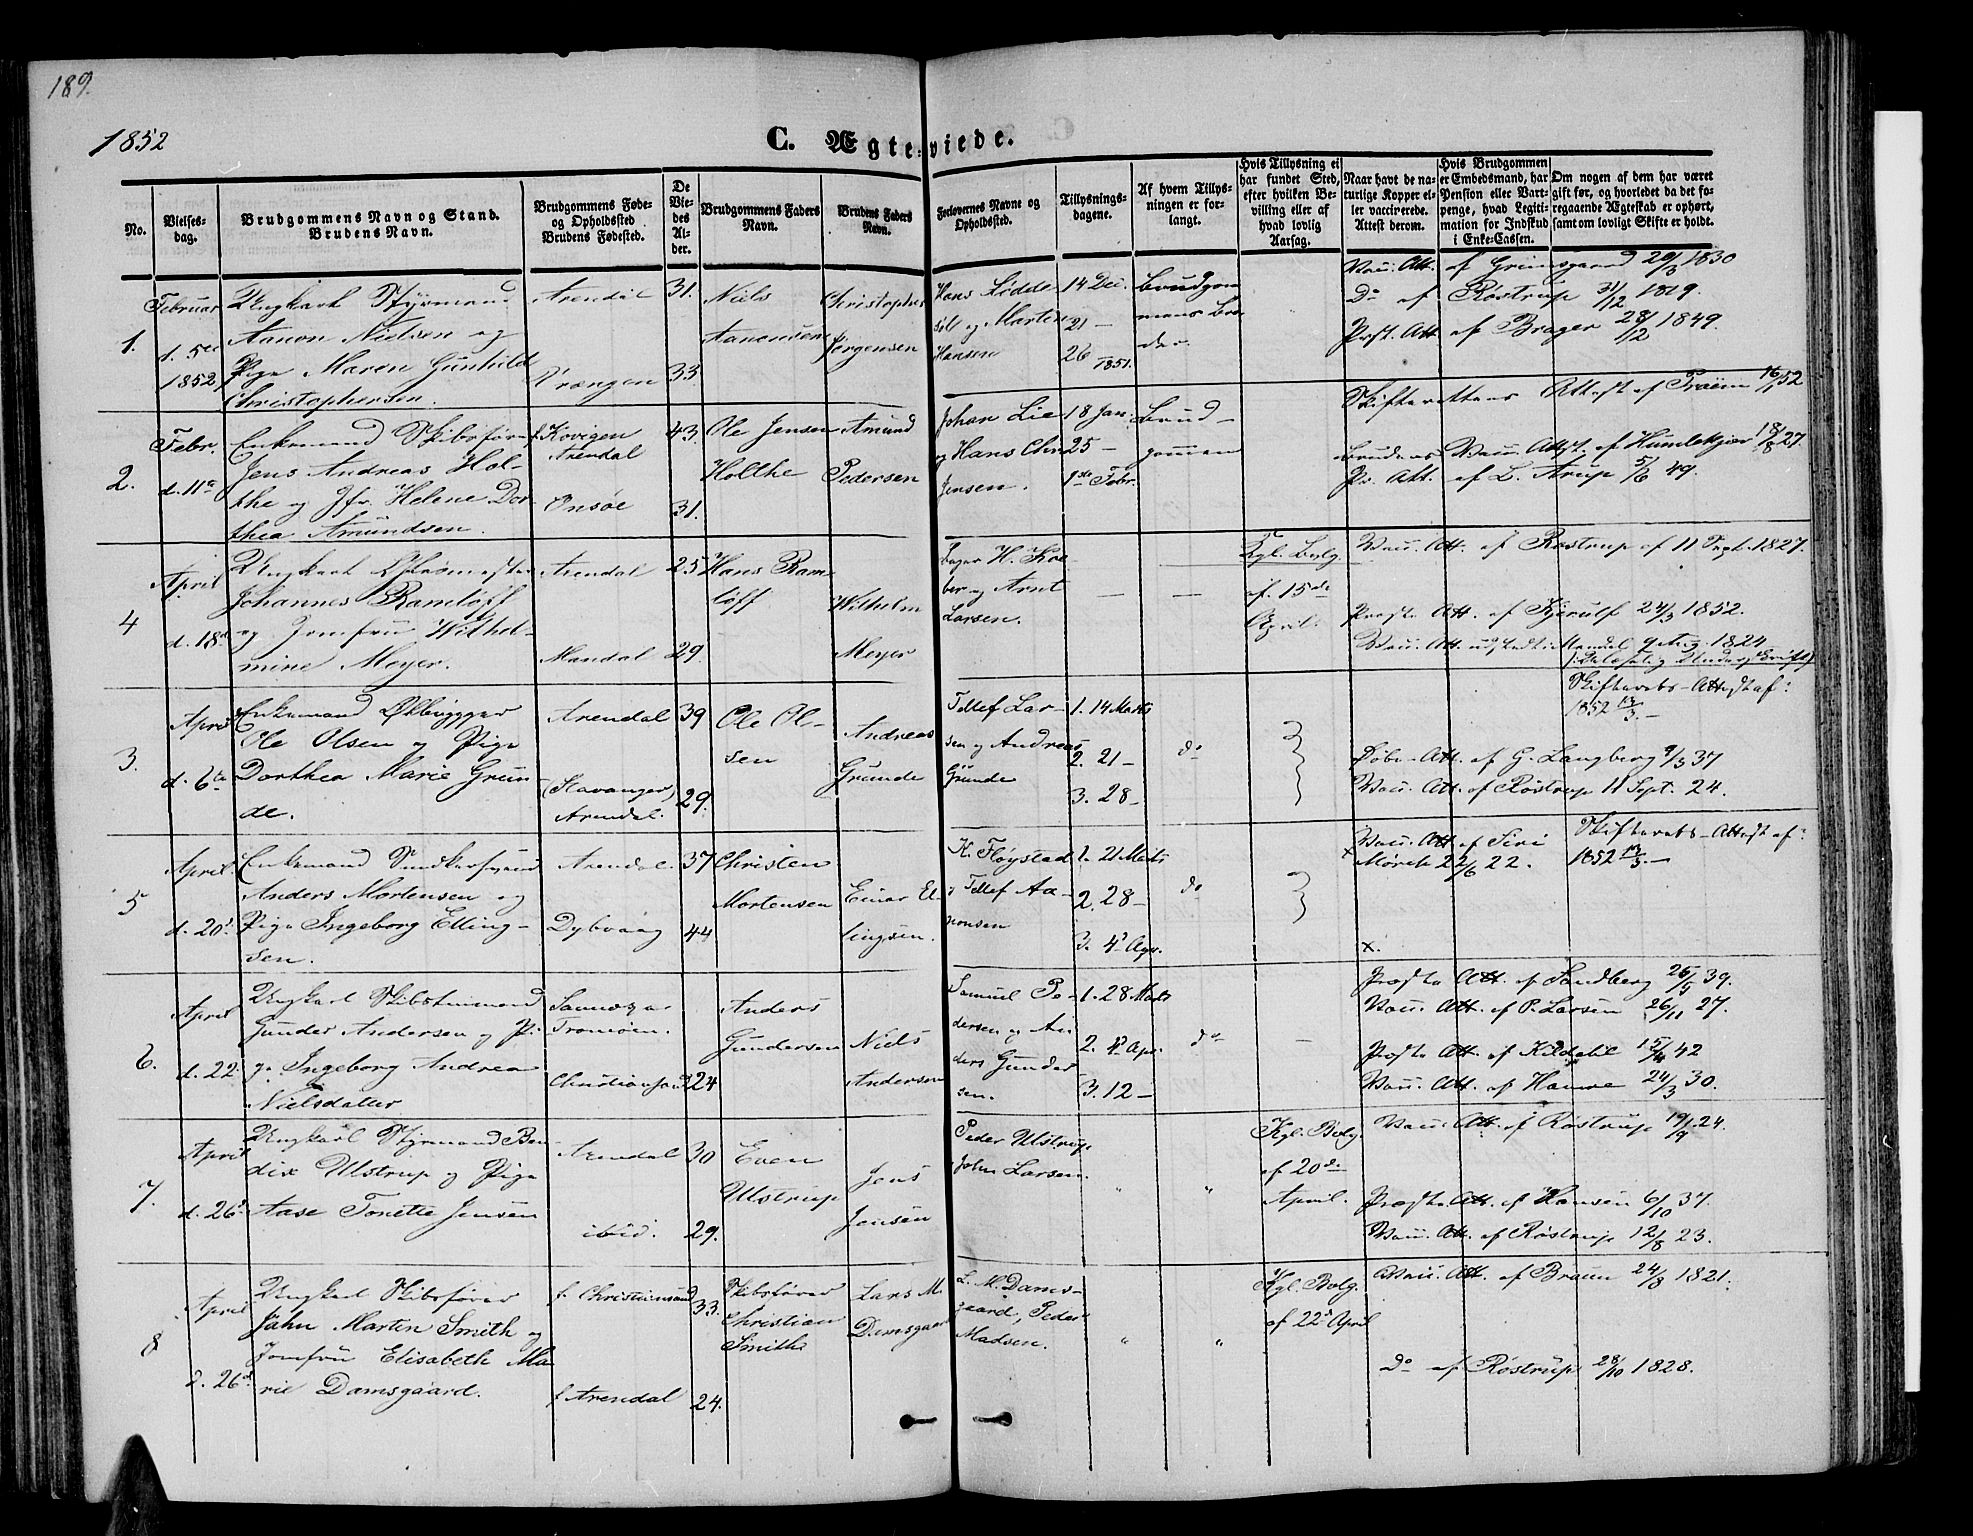 189.
1852
C. Ægteviede.
No.
Vielses-
dag.
Brudgommens Navn og Stand.
Brudens Navn.
Brudgommens Føde-
og Opholdssted
Brudens Fødested.
De
Vie-
des
Al-
der.
Brudgommens Faders
Navn.
Brudens Faders
Navn.
Forlovernes Navne og
Opholdssted.
Tillysnings-
dagene.
Af hvem Tillys-
ningen er for-
langt.
Hvis Tillysning ei
har fundet Sted,
efter hvilken Be-
villing eller af
hvad lovlig
Aarsag.
Naar havt de na-
turlige Kopper el-
ler vaccinerede.
Attest derom.
Hvis Brudgommen
er Embedsmand, har
Pension eller Vart-
penge, hvad Legiti-
mation for Indskud
i Enke-Cassen.
Om nogen af dem har været
gift før, og hvorledet da det fo-
regaaende Ægteskab er ophørt,
samt om lovligt Skifte er holdt.
1.
Februar
d. 5te
1852
Ungkarl Styrmand
Aanon Nielsen og
Pige Maren Gunhild
Christophersen.
Arendal
31.
33.
Niels
Aanonsen
Christopher
Jørgensen
Hans
og Morten
Hansen
14 Dec.
21 –
26
1851.
Brudgom
mens Bro
der.
Vacc. Att. af Grimsgaard 20/3 1830
Do af Røstrup 31/12 1819.
Præst. Att. af Brager 28/2 1849.
2.
Febr.
d. 11te
Enkemand Skibsfører
Jens Andreas Hol-
the og Jfr. Helene Dor-
thea Amundsen.
Arendal
Onsøe
43.
31.
Ole Jensen
Holthe
Amund
Pedersen
Johan Lie
og Hans Chr.
Jensen.
18 Jan.
25 –
1ste Febr.
Brud-
gommen
Skifterettens Attest af 16/1 52
Brudens Vacc. Attst. af Humlekjær 18/8 27.
Pr. Att. af L. Arup 5/6 49.
4
April
d. 18de
Ungkarl
Johannes Ramløff
og Jomfru Wilhel-
mine Meyer.
Arendal
Mandal
25
29.
Hans Ram
løff
Wilhelm
Meyer
H. Koe
ber og Arnt
Larsen.
— —
Kgl. Bvlg.
af 15de
April.
Vacc. Att. af Røstrup af 11 Sept. 1827.
Præste Att. af Kjerulf 24/3 1852.
Vacc. Att. udstedt i Mandal 9 Aug. 1824
3.
April
d. 6te
Enkemand Ølbrygger
Ole Olsen og Pige
Dorthea Marie Grun-
de.
Arendal
(Stavanger)
Arendal.
39
29.
Ole Ol-
sen
Andreas
Grunde
Tellef Lar-
sen og Andreas
Grunde
1. 14 Marts
2. 21 –
3. 28 –
do
Skifterets-Attest af
1852 13/3. –
Døbe-Att. af G. Langberg 9/3 37
Vacc. Att. af Røstrup 11 Sept. 24.
5
April
d. 20de
Enkemand
Anders Mortensen og
Pige Ingeborg Elling-
sen.
Arendal.
Dybvaag
37
44
Christen
Mortensen
Einar El-
lingsen.
K. Fløystad
og Tellef Aa-
nonsen
1. 21 Marts
2. 28 –
3. 4de Apr.
do
Vacc. Att. af Siri
x Mørck 22/6 22.
Skifterets-Attest af
1852 13/3. –
x.
6.
April
d. 22
Ungkarl Skibstømmermand
Gunder Andersen og Pi-
ge Ingeborg Andrea
Nielsdatter
Tromøen.
Christiansand
24
Anders
Gundersen
Niels
Andersen
Samuel Pe-
dersen og An-
ders Gunder
sen.
1. 28 Marts
2. 4de Apr.
3. 12 –
do
–
Præste Att. af Sandberg 26/5 39.
Vacc. Att. af P. Larsen 26/11 27.
Præste Att. af Kildahl 15/4 42
Vacc. Att. af Hamre 24/3 30.
7.
April
d. 26de
Ungkarl Styrmand Ben
dix Ulstrup og Pige
Aase Tonette Jensen
Arendal
ibid.
30
29.
Even
Ulstrup
Jens
Jensen
Peder Ulstrup
John Larsen.
" "
Kgl. Bvlg.
af 20de
April.
Vacc. Att. af Røstrup 19/9 24.
Præste Att. af Hansen 6/10 37.
Vacc. Att. af Røstrup 12/8 23.
8
April
d. 26de
Ungkarl Skibsfører
John Martin Smith og
Jomfru Elisabeth Ma-
rie Damsgaard.
f. Christiansand
f. Arendal
33.
24.
Skibsfører
Christian
Smith
Lars M.
Damsgaard
L. M. Dams-
gaard, Peder
Madsen.
" "
Kgl. Bvlg.
af 22de April
Vacc. Att. af Bruun 24/8 1821.
do af Røstrup 28/10 1828.